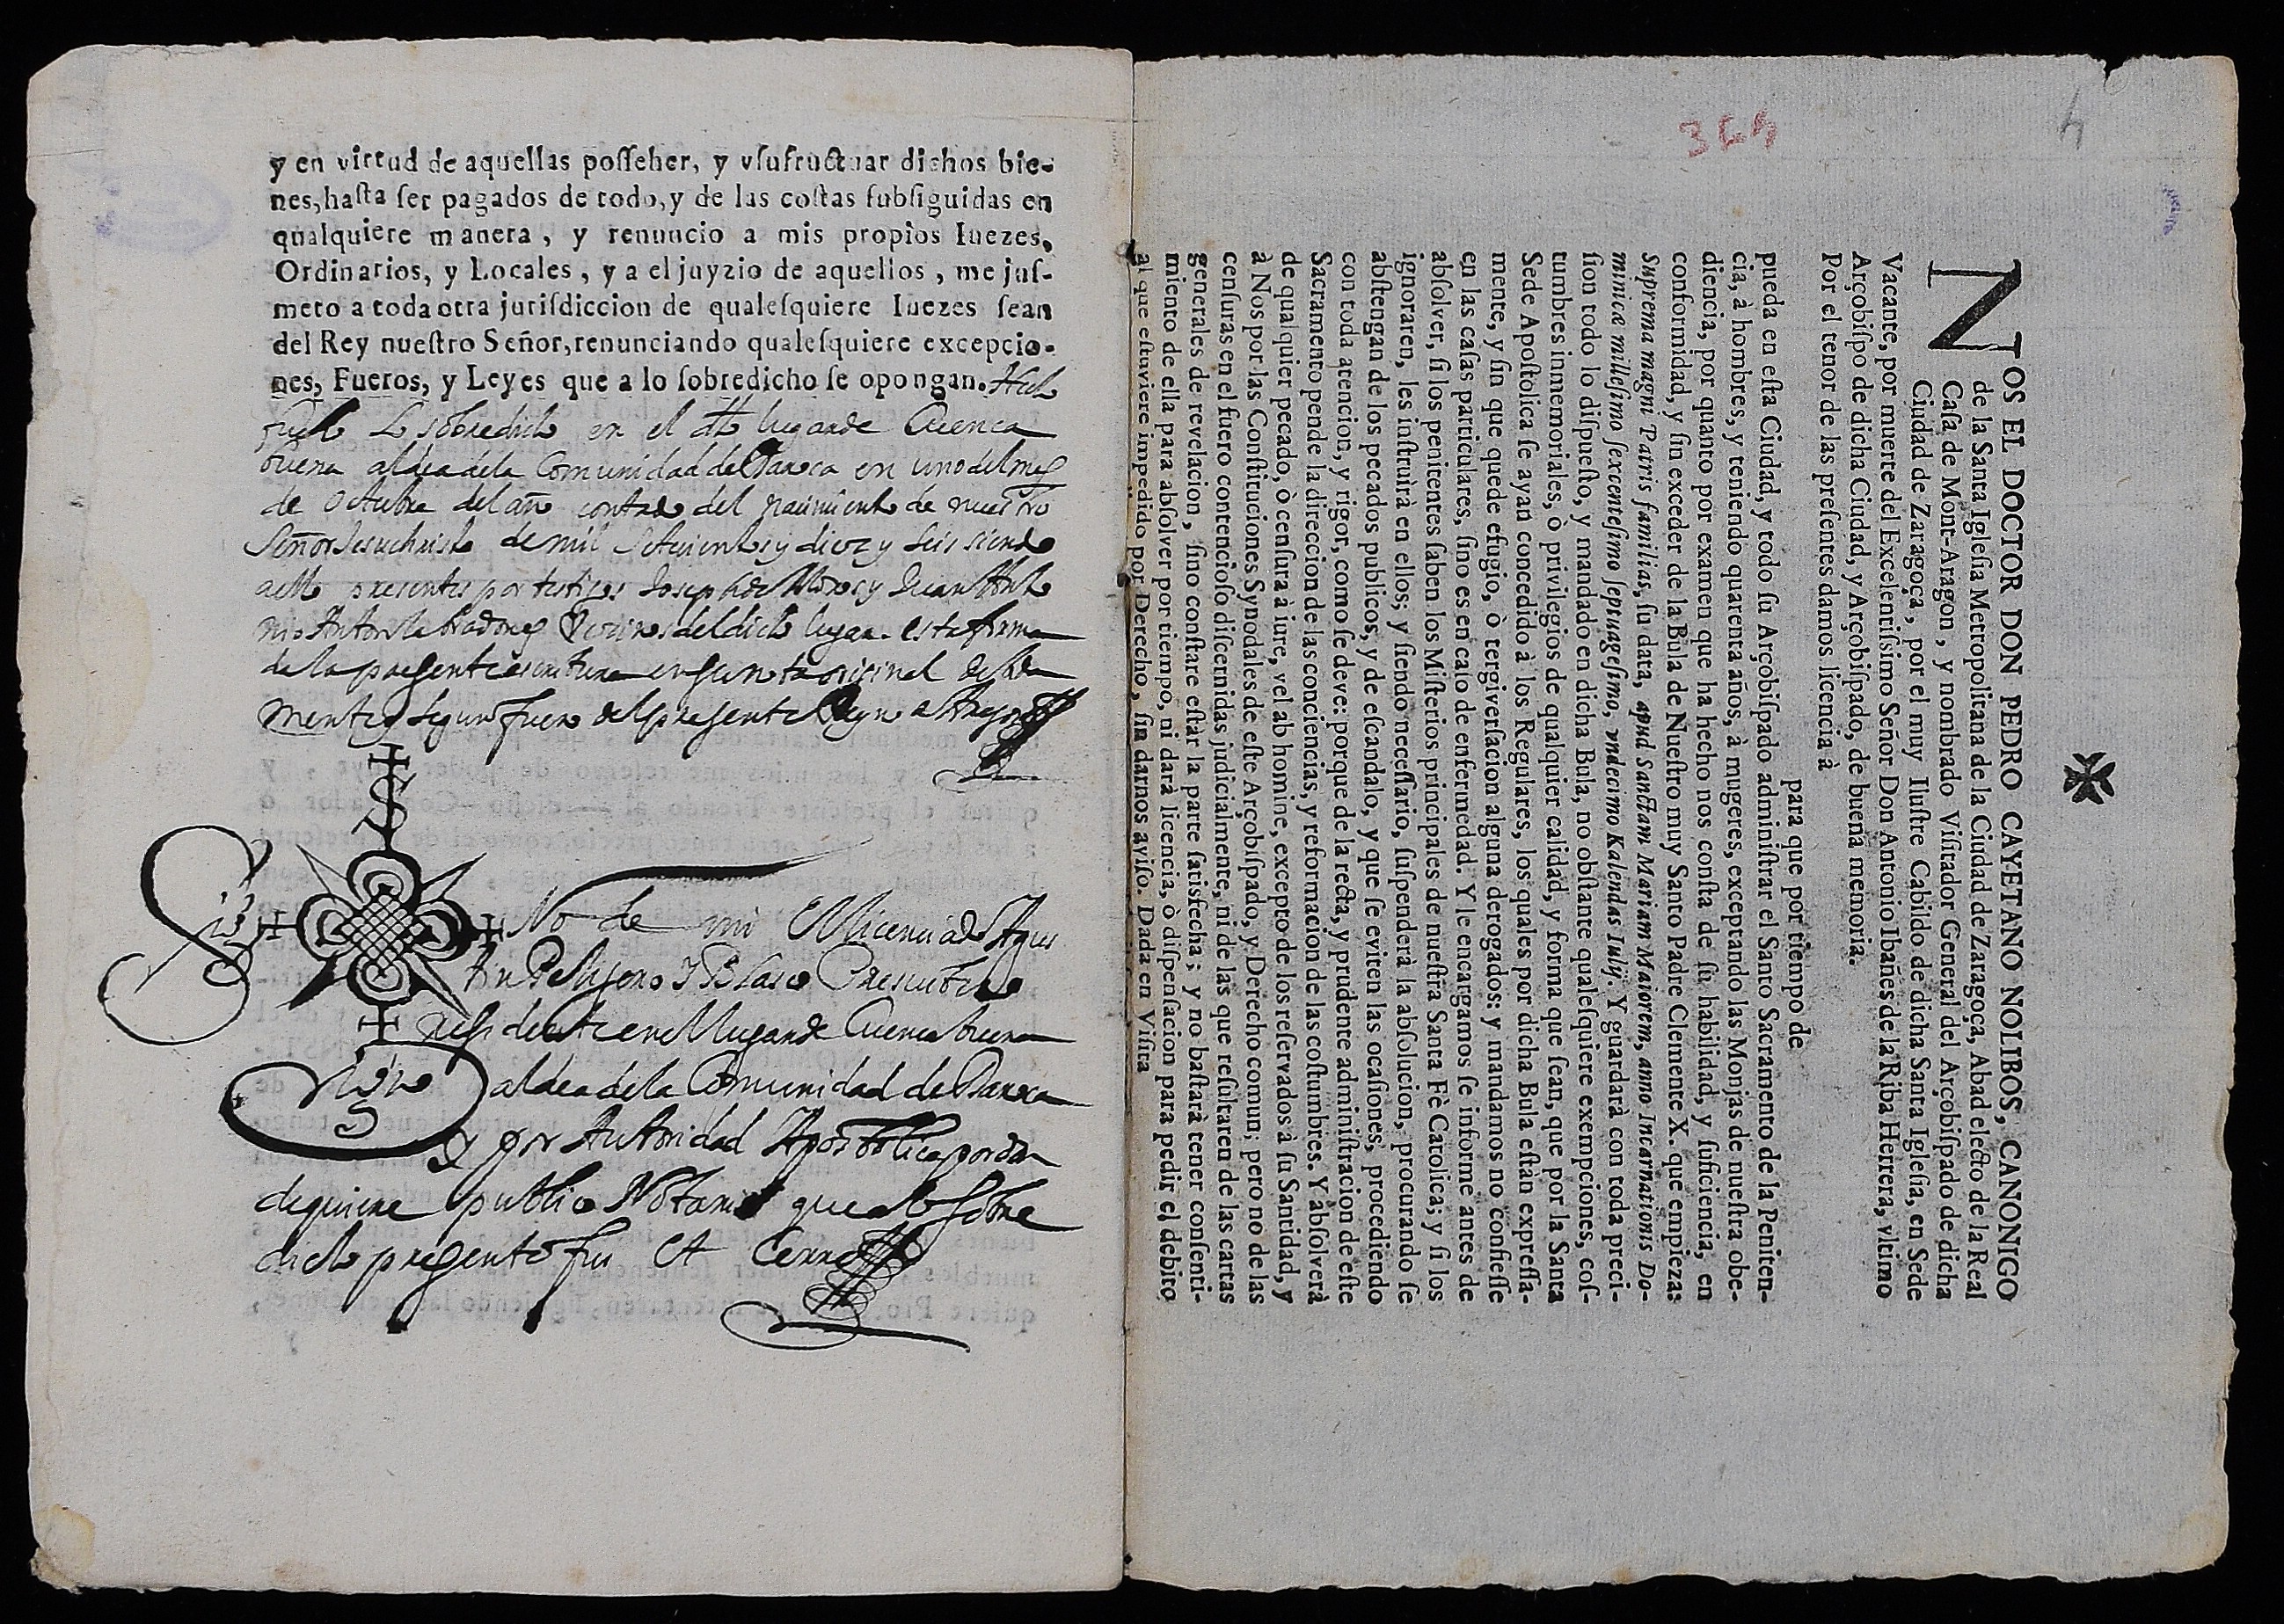 y en virtud de aquellas poſſeher, y vſufructuar dichos bie-
nes, haſta ſer pagados de todo, y de las coſtas ſubſiguidas en
qualquiere manera, y renuncio a mis propios Iuezes,
Ordinarios, y Locales, y a el juyzio de aquellos, me juſ-
meto a toda otra juriſdiccion de qualeſquiere Iuezes ſean
del Rey nueſtro Señor, renunciando qualeſquiere excepcio-
nes, Fueros, y Leyes que a lo ſobredicho ſe opongan. Hecho
fue lo sobredicho en el dho lugar de Cuenca
buena aldea de la Comunidad de Daroca en uno del mes
de Octubre del añ contado del nacimiento de nuestro
Señor Jesuchristo de mil Setecientos y diez y seis siendo
a ello presentes por testigos Joseph de Moros y Juan Anto
nio Anton labradores Vecinos del dicho lugar. esta firma
da la presente escritura en su nota original de bida
mente segun fuero del presente Reyno de Aragon
Sig No de mi el Licenciado Agus
tin Peligero y Blasco Presbitero
residente en el lugar de Cuenca buena
aldea de la Comunidad de Daroca
y por Autoridad Apostolica por do
dequiere publico Notario que a lo sobre
dicho presente fui Et Cerre
364
4
NOS EL DOCTOR DON PEDRO CAYETANO NOLIBOS, CANONIGO
de la Santa Igleſia Metropolitana de la Ciudad de Zaragoça, Abad electo de la Real
Caſa de Mont-Aragon, y nombrado Viſitador General del Arçobiſpado de dicha
Ciudad de Zaragoça, por el muy Iluſtre Cabildo de dicha Santa Igleſia, en Sede
Vacante, por muerte del Excelentiſsimo Señor Don Antonio Ibañes de la Riba Herrera, vltimo
Arçobiſpo de dicha Ciudad, y Arçobiſpado, de buena memoria.
Por el tenor de las preſentes damos licencia à
para que por tiempo de
pueda en eſta Ciudad, y todo ſu Arçobiſpado adminiſtrar el Santo Sacramento de la Peniten-
cia, à hombres, y teniendo quarenta años, à mugeres, exceptando las Monjas de nueſtra obe-
diencia, por quanto por examen que ha hecho nos conſta de ſu habilidad, y ſuficiencia, en
conformidad, y ſin exceder de la Bula de Nueſtro muy Santo Padre Clemente X. que empieza:
Suprema magni Patris familias, ſu data, apud Sanctam Mariam Maiorem, anno Incarnationis Do-
minicæ milleſimo ſexcenteſimo ſeptuageſimo, vndecimo Kalendas Iulij. Y guardarà con toda preci-
ſion todo lo diſpueſto, y mandado en dicha Bula, no obſtante qualeſquiere exempciones, coſ-
tumbres inmemoriales, ò privilegios de qualquier calidad, y forma que ſean, que por la Santa
Sede Apoſtolica ſe ayan concedido à los Regulares, los quales por dicha Bula eſtàn expreſſa-
mente, y ſin que quede efugio, ò tergiverſacion alguna derogados: y mandamos no confieſſe
en las caſas particulares, ſino es en caſo de enfermedad. Y le encargamos ſe informe antes de
abſolver, ſi los penitentes ſaben los Miſterios principales de nueſtra Santa Fè Catolica; y ſi los
ignoraren, les inſtruirà en ellos; y ſiendo neceſſario, ſuſpenderà la abſolucion, procurando ſe
abſtengan de los pecados publicos, y de eſcandalo, y que ſe eviten las ocaſiones, procediendo
con toda atencion, y rigor, como ſe deve: porque de la recta, y prudente adminiſtracion de eſte
Sacramento pende la direccion de las conciencias, y reformacion de las coſtumbres. Y abſolverà
de qualquier pecado, ò cenſura à iure, vel ab homine, excepto de los reſervados à ſu Santidad, y
à Nos por las Conſtituciones Synodales de eſte Arçobiſpado, y Derecho comun; pero no de las
cenſuras en el fuero contencioſo diſcernidas judicialmente, ni de las que reſultaren de las cartas
generales de revelacion, ſino conſtare eſtàr la parte ſatisfecha; y no baſtarà tener conſenti-
miento de ella para abſolver por tiempo, ni darà licencia, ò diſpenſacion para pedir el debito,
al que eſtuviere impedido por Derecho, ſin darnos aviſo. Dada en Viſita